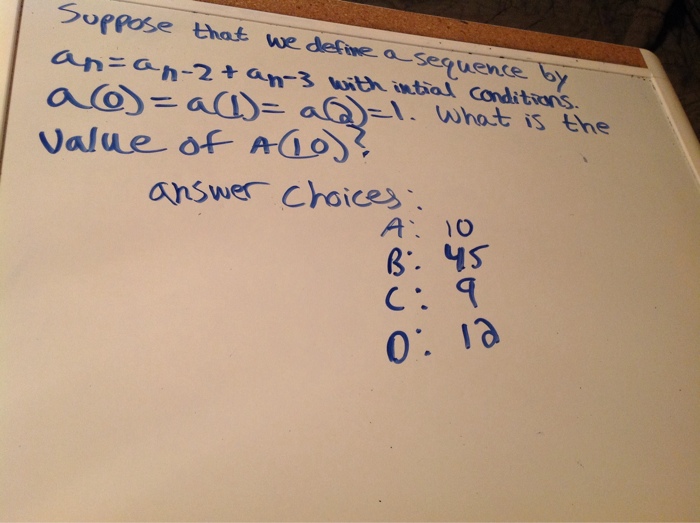 Suppose that we define a sequence by
an=an-2+an-3 with intial conditions.
a(0)=a(1)=a(2)=1. What is the
value of A(10)?
answer choices:
A: 10
B: 45
C: 9
D: 12